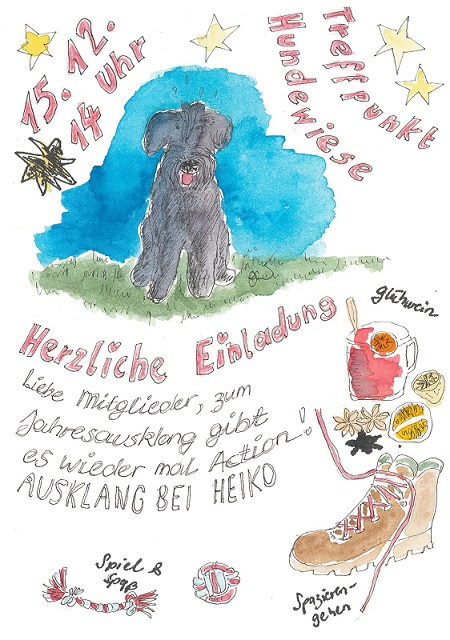 15.12.
14 Uhr
Treffpunkt
Hundewiese
Herzliche Einladung
Liebe Mitglieder, zum
Jahresausklang gibt
es wieder mal Action!
AUSKLANG BEI HEIKO
Glühwein
Spiel &
Spaß
Spazieren-
gehen